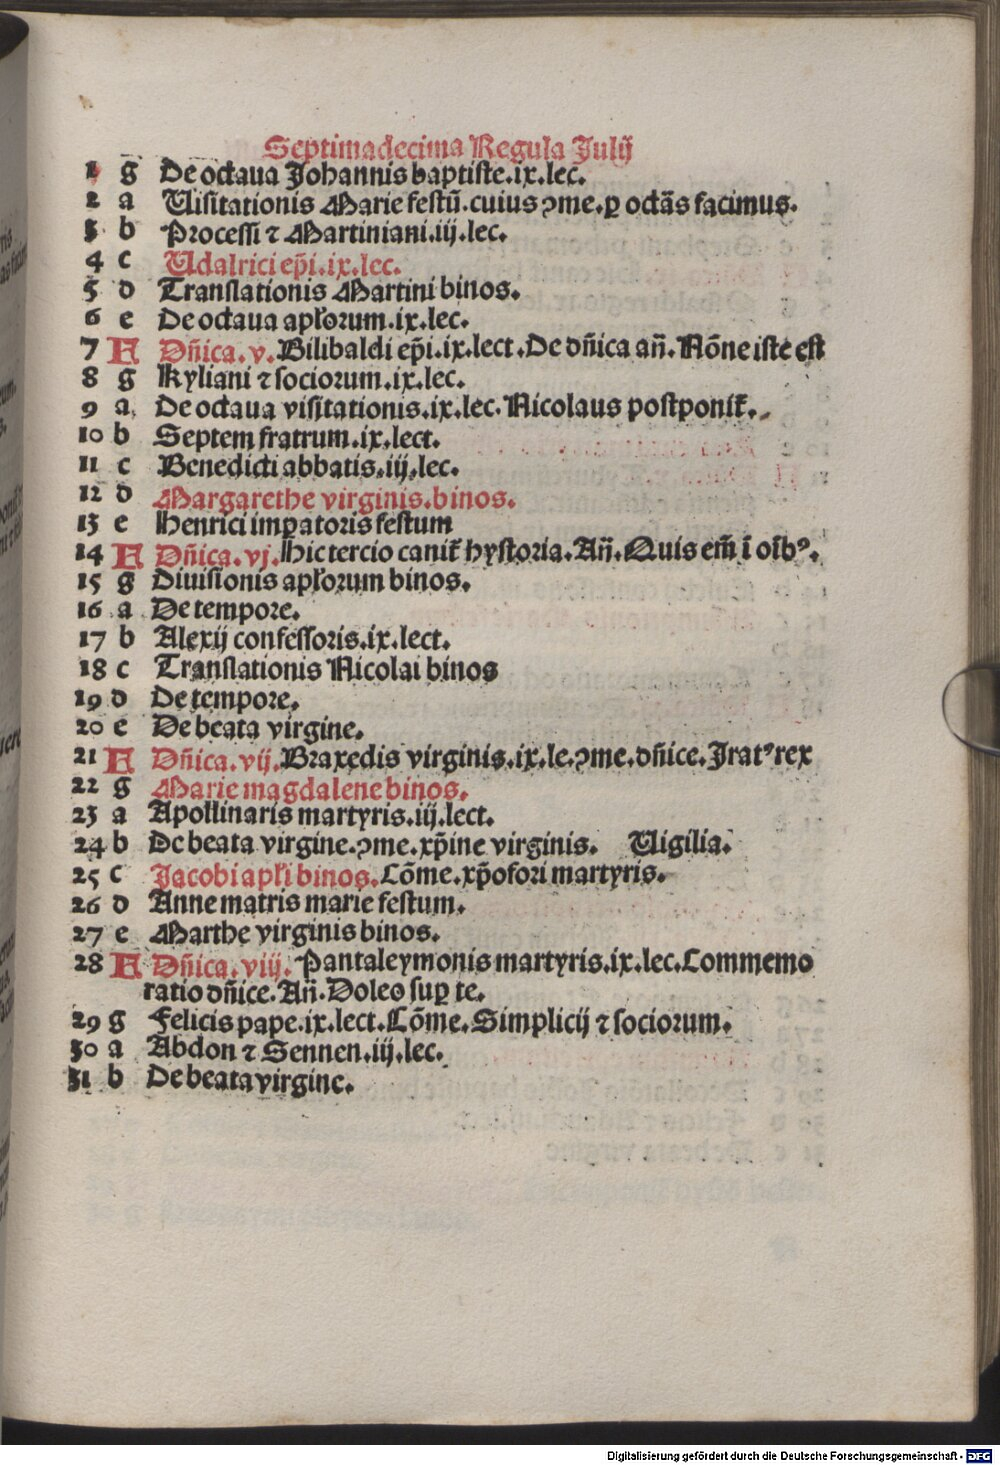 Septimadecima Regula Julij
1 g De octaua Johannis baptiste.ix.lec.
2 a Uisitationis Marie festū.cuius ꝯme.ꝑ octāș facimus.
3 b Processi ⁊ Martiniani.iij.lec.
4 c Udalrici ep̄i.ix.lec.
5 d Translationis Martini binos.
6 e De octaua apl'orum.ix.lec.
7 A Dn̄ica.v.Bilibaldi ep̄i.ix.lect.De dn̄ica an̄.Nōne iste est
8 g Kyliani ⁊ sociorum.ix.lec.
9 a De octaua visitationis.ix.lec.Nicolaus postponit᷑.
10 b Septem fratrum.ix.lect.
11 c Benedicti abbatis.iij.lec.
12 d Margarethe virginis.binos.
13 e Henrici imꝑatoris festum
14 A Dn̄ica.vj.Hic tercio canit᷑ hystoria.An̄.Quis em̄ ī oīb⁹.
15 g Diuisionis apl'orum binos.
16 a De tempore.
17 b Alexij confessoris.ix.lect.
18 c Translationis Nicolai binos
19 d De tempore.
20 e De beata virgine.
21 A Dn̄ica.vij.Braxedis virginis.ix.le.ꝯme.dn̄ice.Irat⁹ rex
22 g Marie magdalene binos.
23 a Apollinaris martyris.iij.lect.
24 b De beata virgine.ꝯme.xp̄ine virginis. Uigilia.
25 c Jacobi apl'i binos.Cōme.xp̄ofori martyris.
26 d Anne matris marie festum.
27 e Marthe virginis binos.
28 A Dn̄ica.viij.Pantaleymonis martyris.ix.lec.Commemo
ratio dn̄ice.An̄.Doleo suꝑ te.
29 g Felicis pape.ix.lect.Cōme.Simplicij ⁊ sociorum.
30 a Abdon ⁊ Sennen.iij.lec.
31 b De beata virgine.
Digitalisierung gefördert durch die Deutsche Forschungsgemeinschaft - DFG